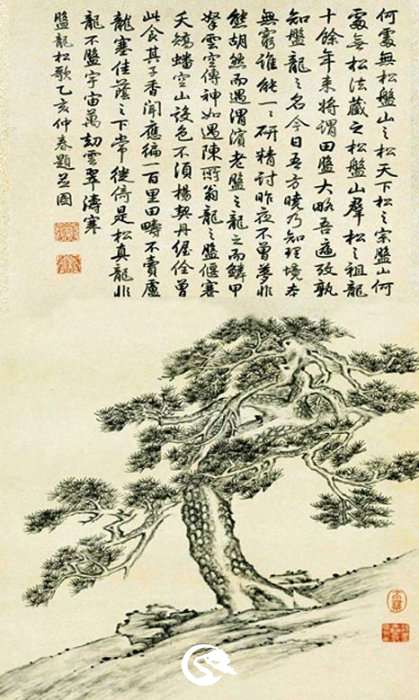 何處無松盤山之松天下松之宗盤山何
處無松法藏之松盤山群松之祖龍
十餘年來將謂田盤大略吾遍攷孰
知盤龍之名今日吾方曉乃知理境本
無窮誰能一一研精討昨夜不曾夢非
熊胡然而遇渭濱老盤之龍之而鱗甲
拏雲空傳神如遇陳所翁龍之盤偃蹇
夭矯蟠空山設色不須楊契丹偓佺曾
此食其子香聞應徧一百里田疇不賣盧
龍塞佳蔭之下常徙倚是松真龍非
龍不盤宇宙萬劫雲翠濤寒
盤龍松歌乙亥仲春題並圖